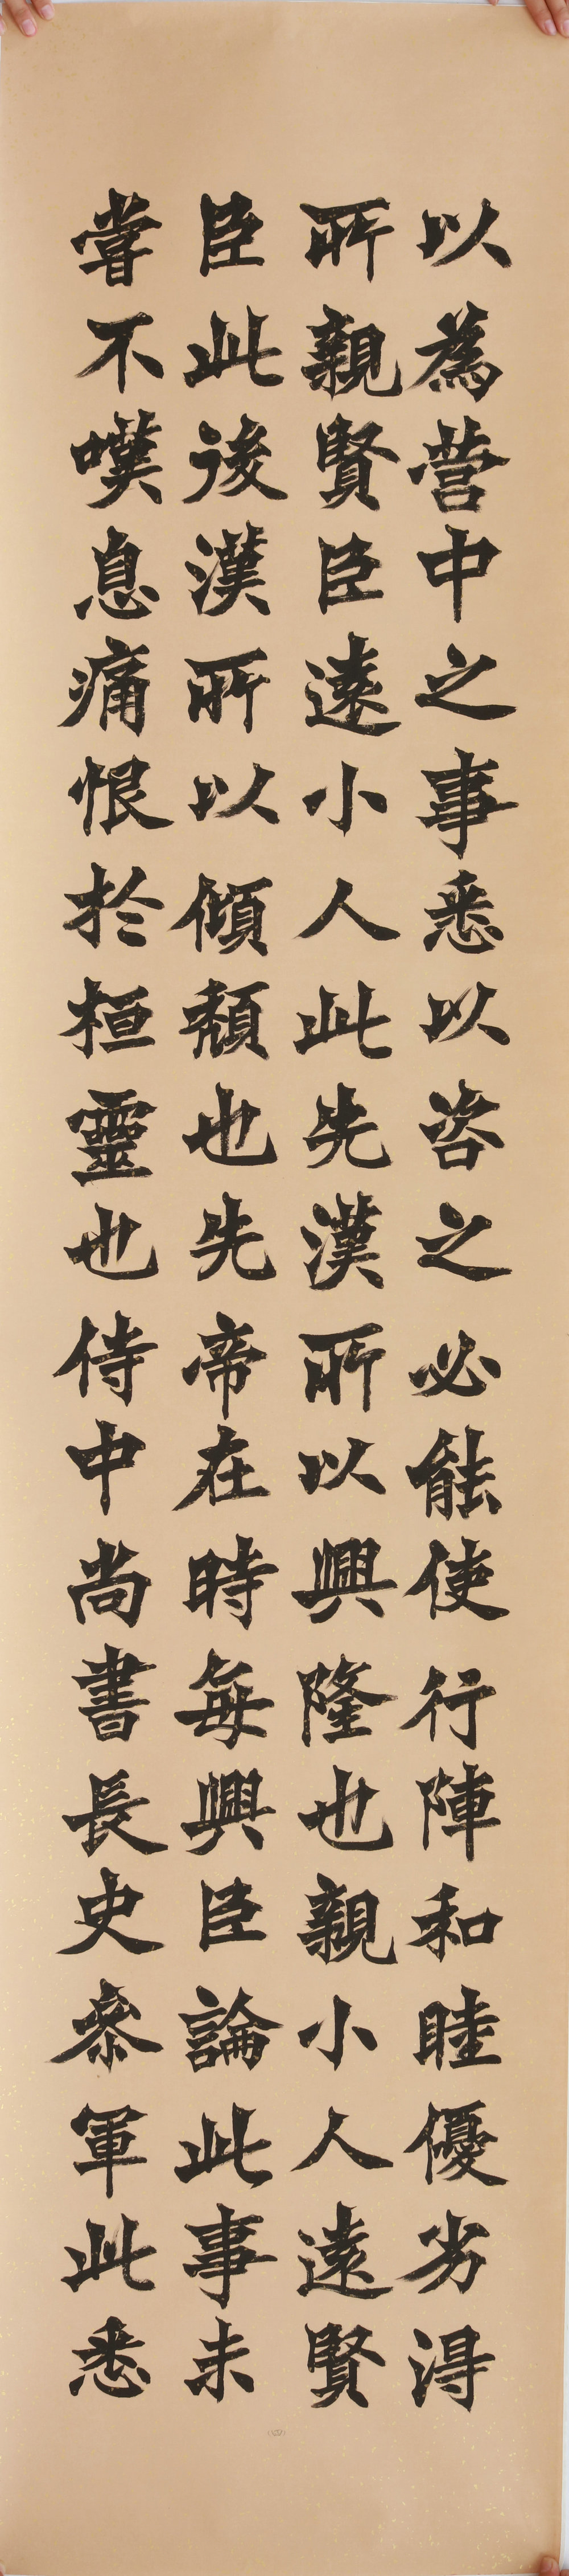 以為營中之事悉以咨之必能使行陣和睦優劣得
所親賢臣遠小人此先漢所以興隆也親小人遠賢
臣此後漢所以傾頹也先帝在時每興臣論此事未
嘗不嘆息痛恨於桓靈也侍中尚書長史參軍此悉